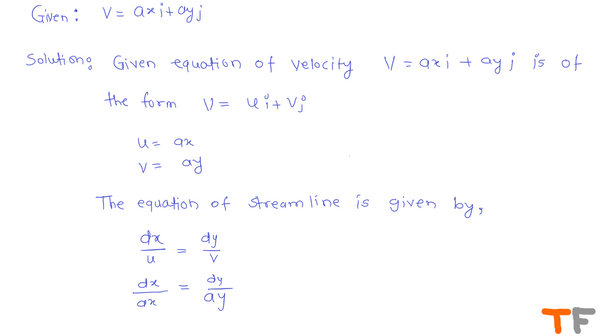 Given: V = axi + ayj
Solution: Given equation of velocity V = axi + ayj is of
the form V = ui + vj
u = ax
v = ay
The equation of streamline is given by,
dx/u = dy/v
dx/ax = dy/ay
TF